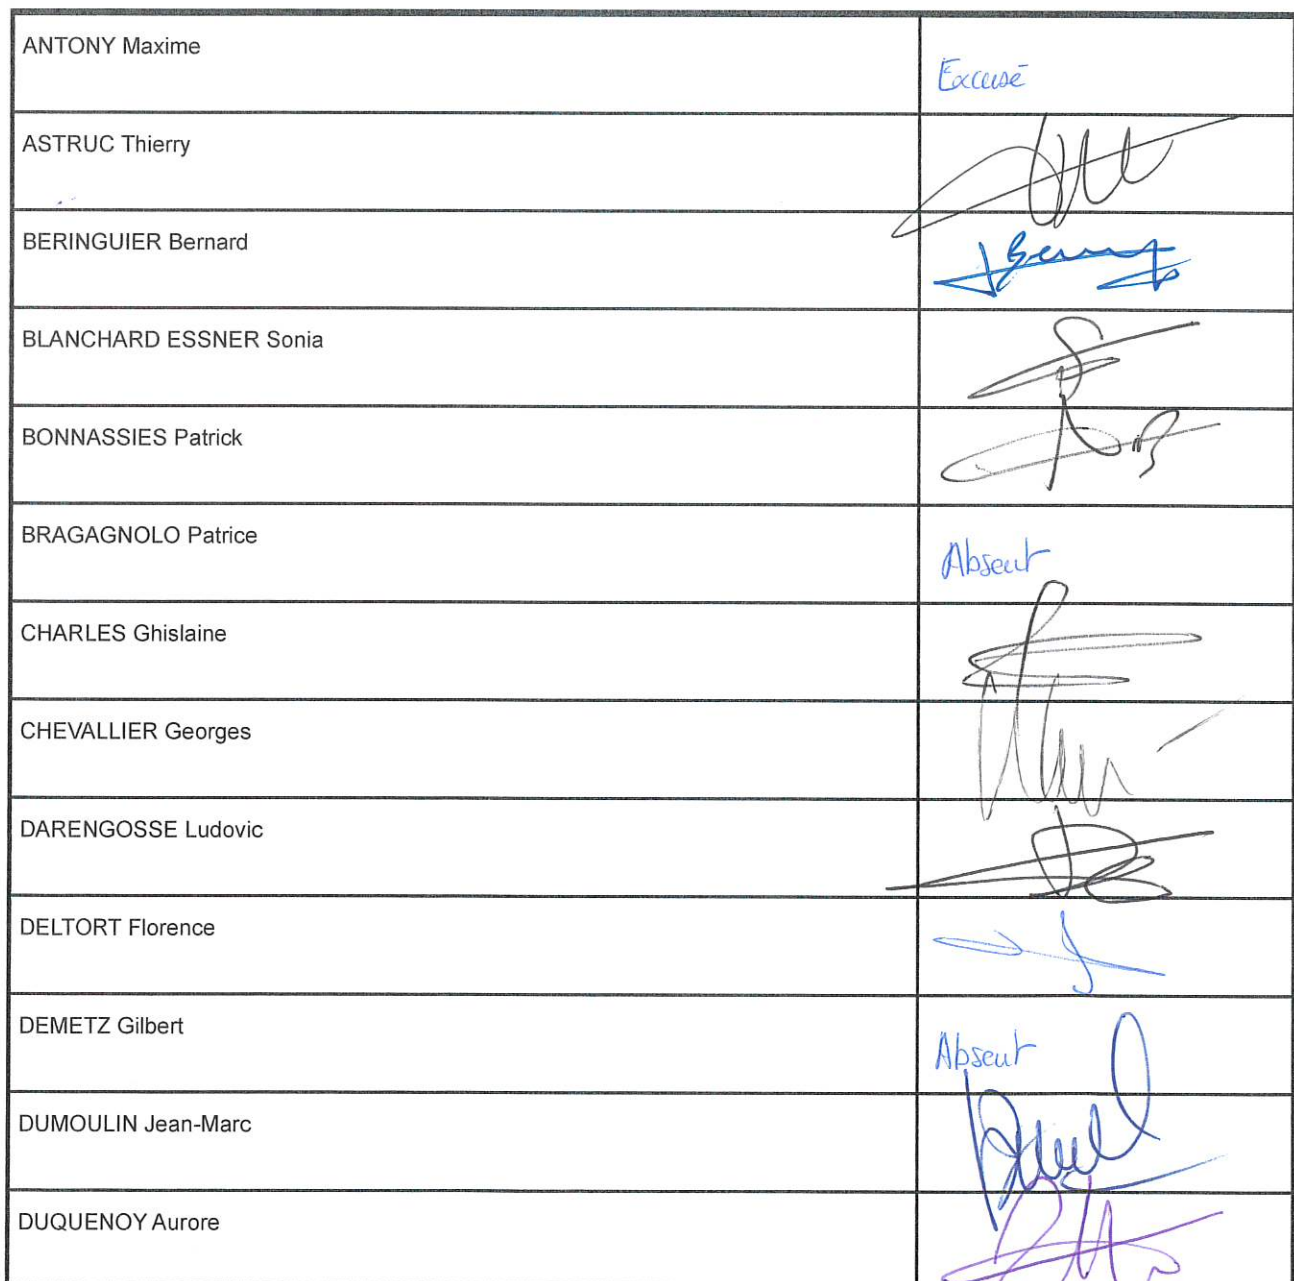 ANTONY Maxime
Excusé
ASTRUC Thierry
BERINGUIER Bernard
BLANCHARD ESSNER Sonia
BONNASSIES Patrick
BRAGAGNOLO Patrice
Absent
CHARLES Ghislaine
CHEVALLIER Georges
DARENGOSSE Ludovic
DELTORT Florence
DEMETZ Gilbert
Absent
DUMOULIN Jean-Marc
DUQUENOY Aurore